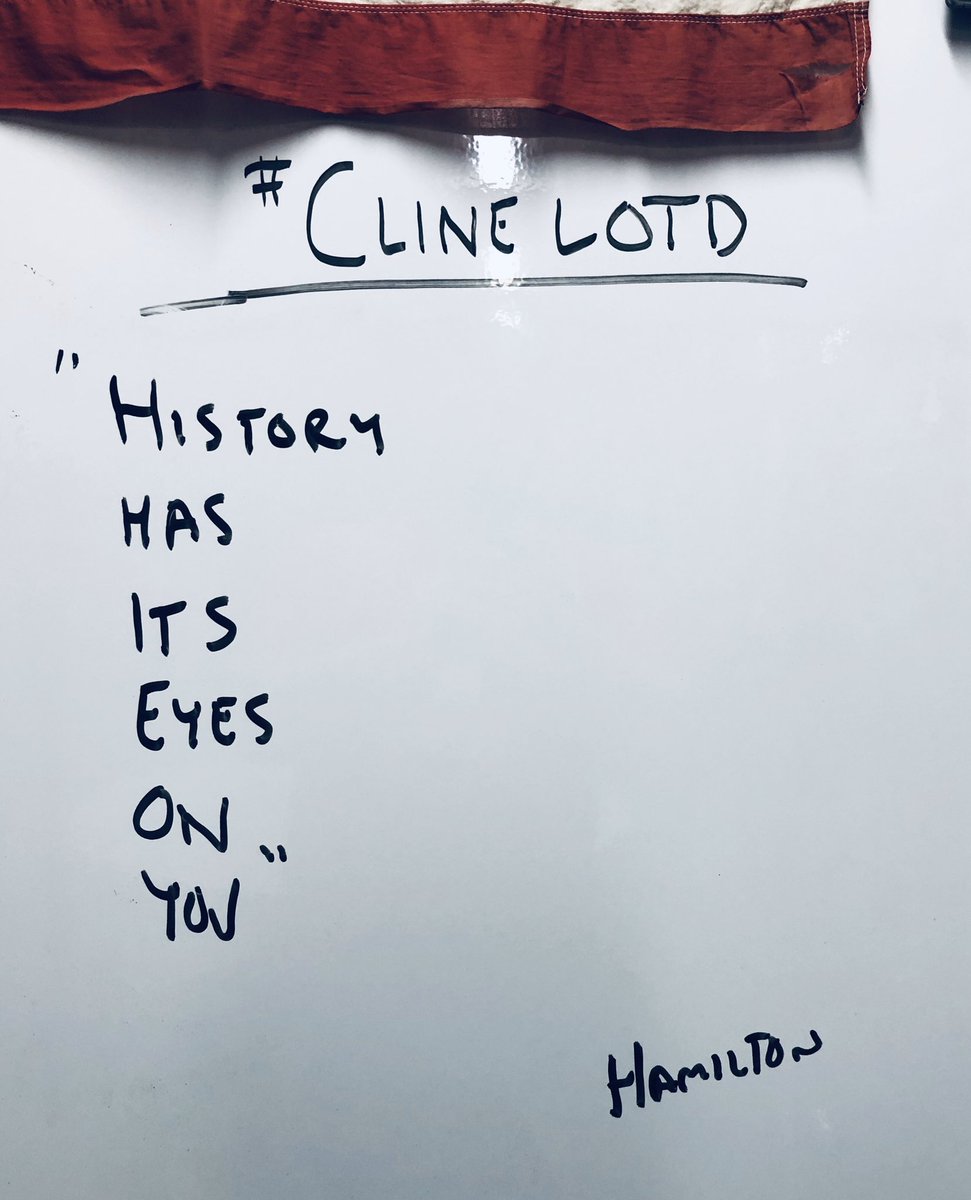 #CLINE LOTD
"HISTORY
HAS
ITS
EYES
ON
YOU"
HAMILTON